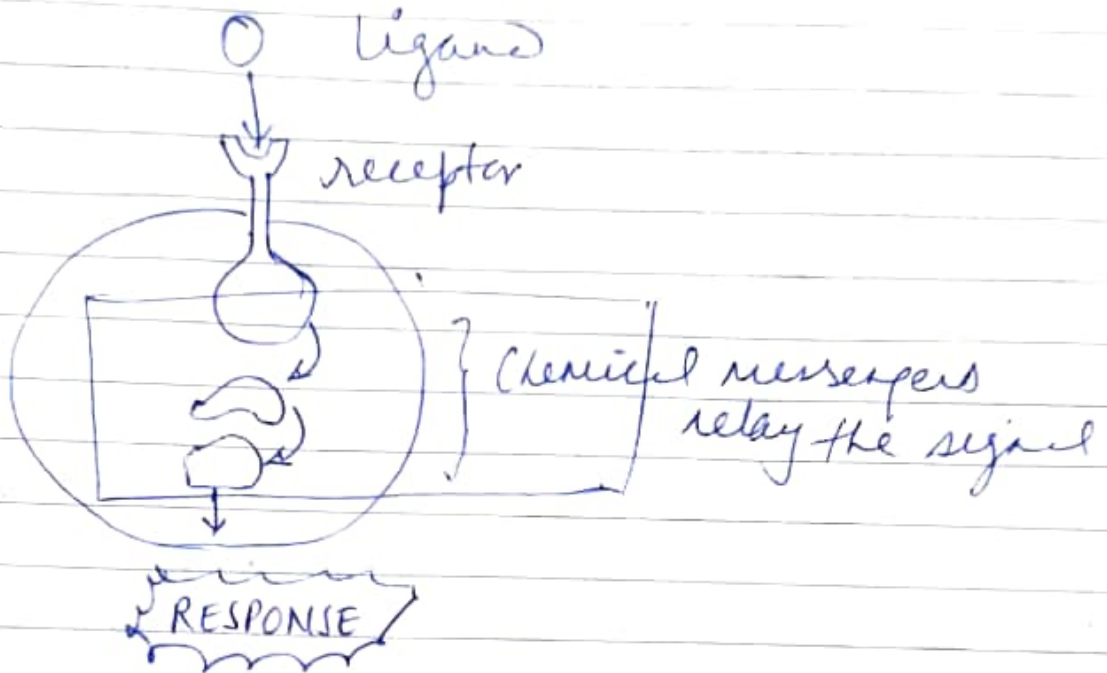 Ligand
receptor
Chemical messengers
relay the signal
RESPONSE